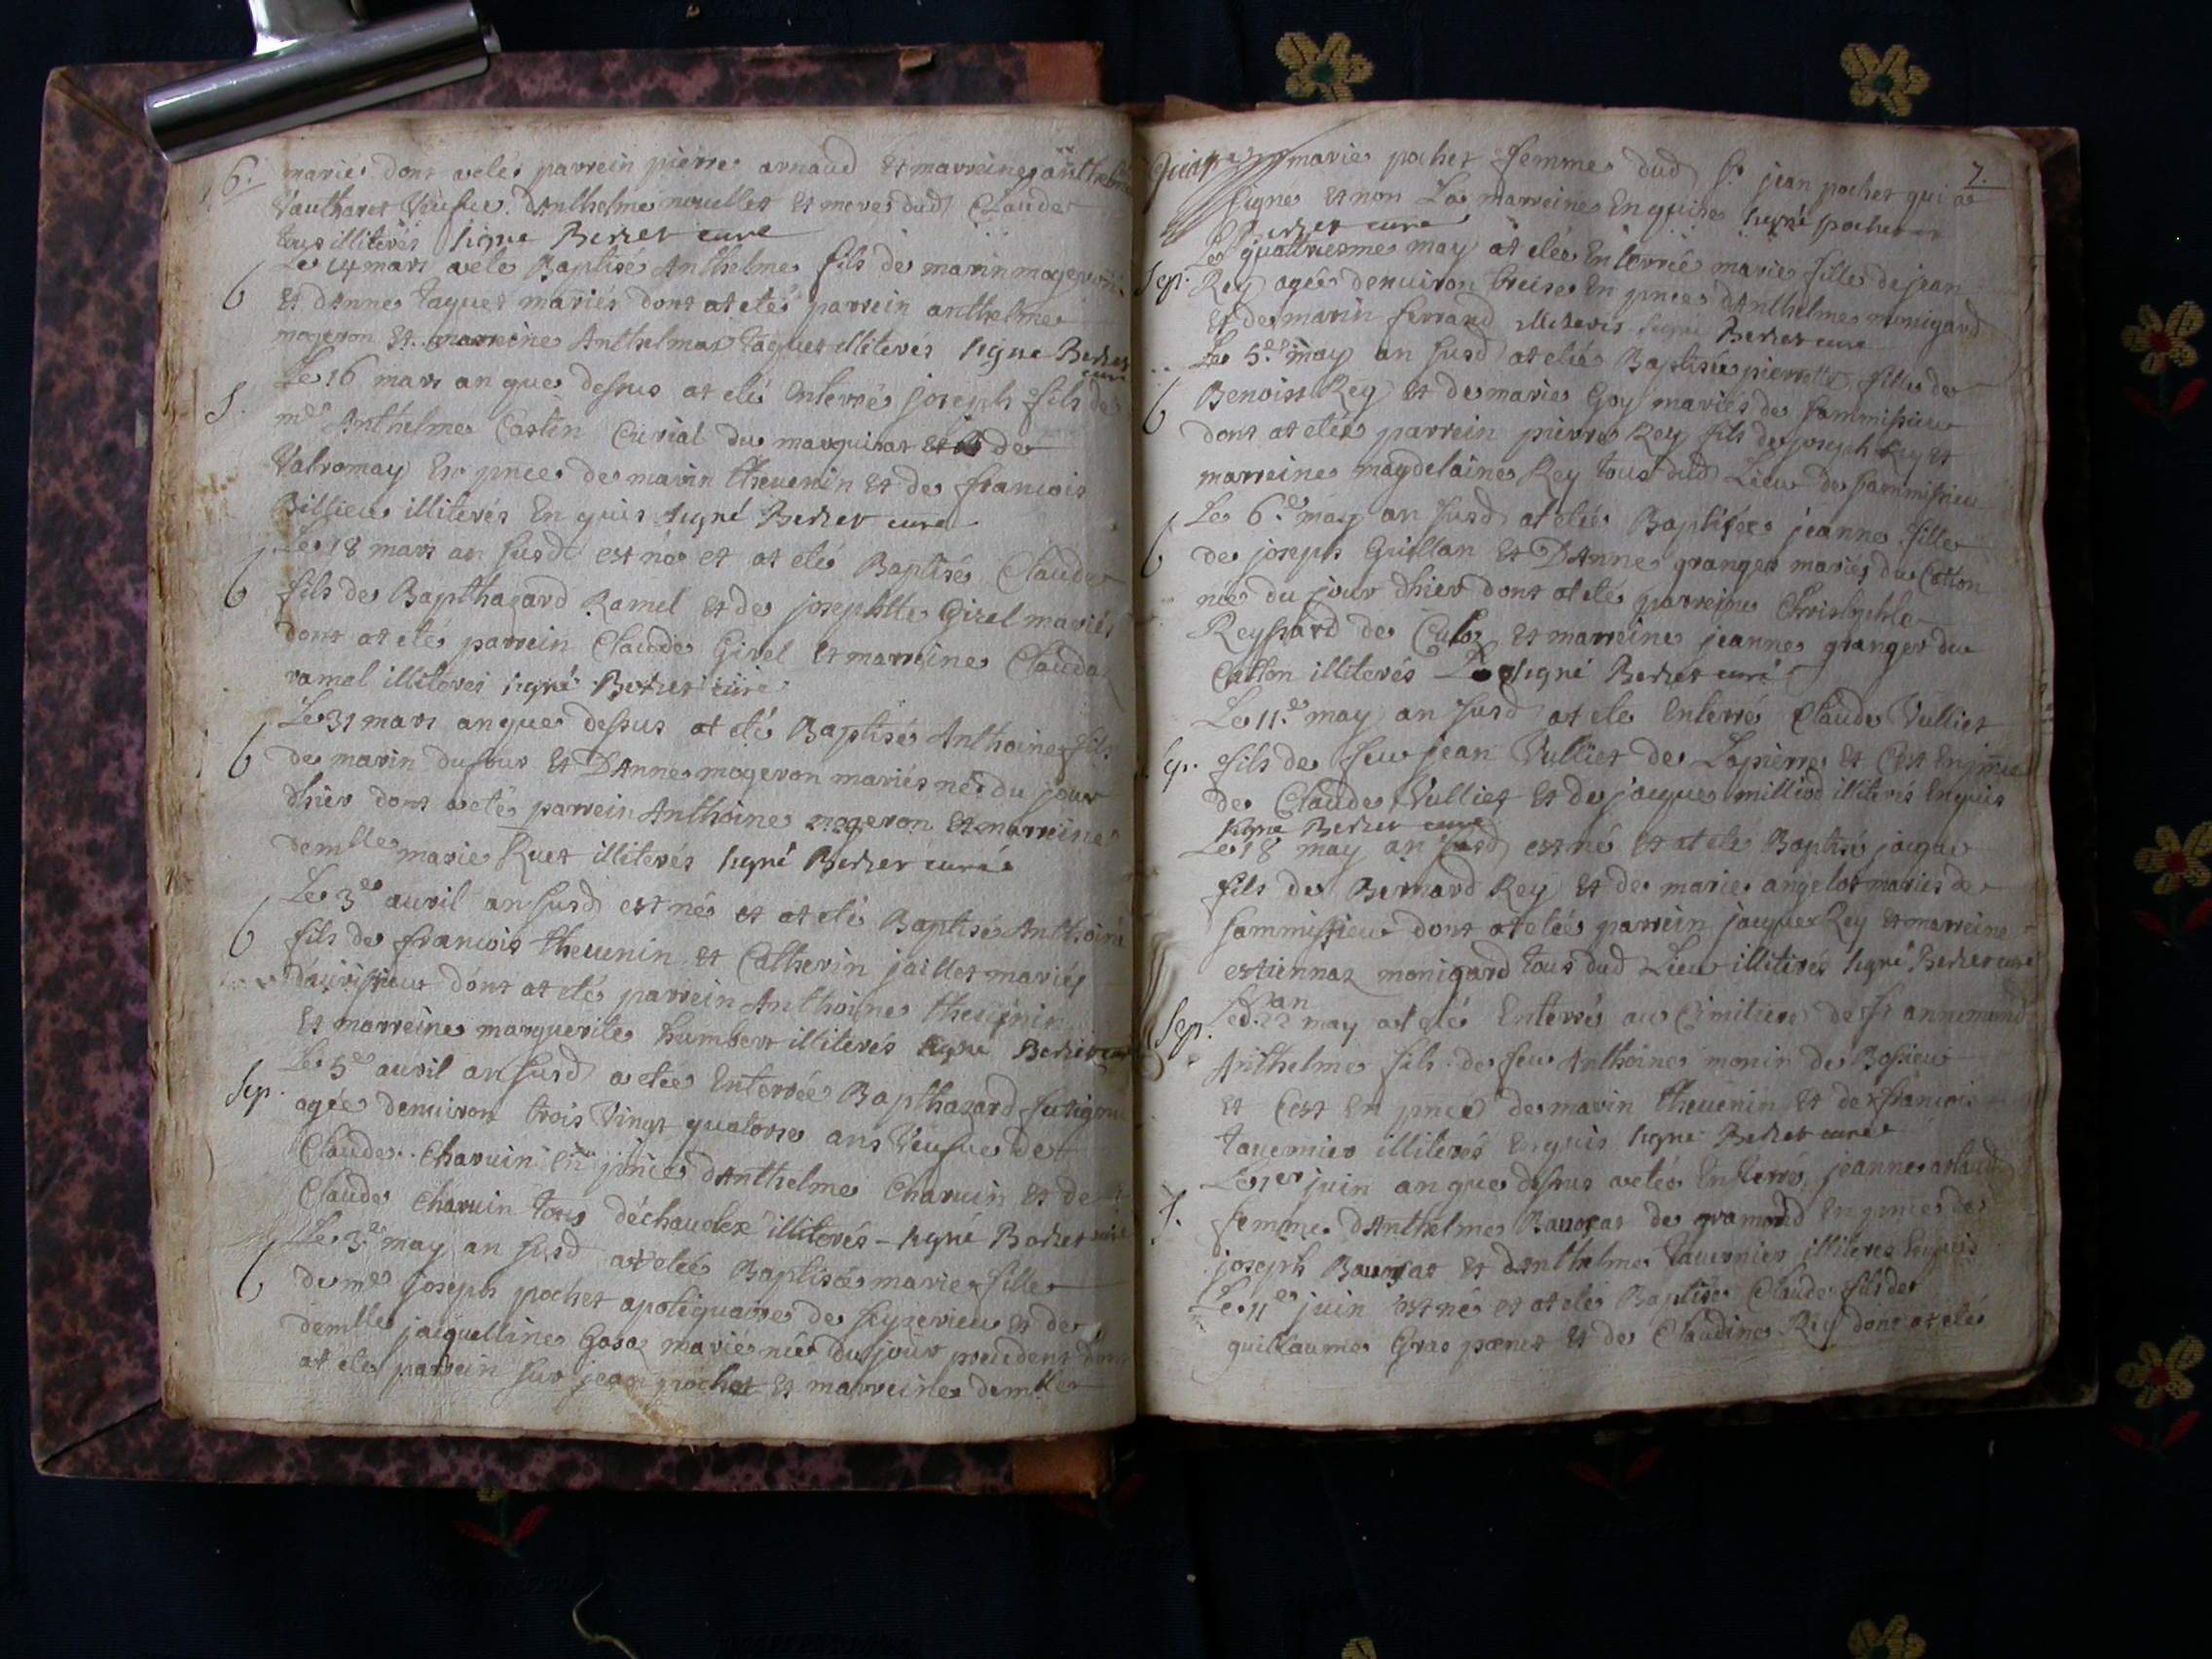 6.
mariés dont a eté parrein pierre arnaud et marreine anthelme
Vautharet Veufve d'Anthelme nouellet et mere dud Claude
tous illiterés signé Berlier curé
b Le 14 mars a eté Baptisé Anthelme fils de marin mogeron
et d'Anne taquet mariés dont at eté parrein anthelme
mogeron et marreine Anthelmaz taquet illiterés signé Berlier
curé
S. Le 16 mars an que dessus at eté enterré joseph fils de
mre Anthelme Costin Curial du marquisat de
Valromay En pnce de marin theuenin et de francois
Billieu illiterés En quis signé Berlier curé
b Le 18 mars an susd est né et at eté Baptisé Claude
fils de Bapthazard Ramel et de josephte Girel mariés
dont at eté parrein Claude Girel et marreine Clauda
ramel illiterés signé Berlier curé
b Le 31 mars an que dessus at eté Baptisé Anthoine fils
de marin dufour et D'Anne mogeron mariés né du jour
d'hier dont a eté parrein Anthoine mogeron et marreine
demlle marie Ruet illiterés signé Berlier curé
b Le 3e auril an susd est né et at eté Baptisé Anthoine
fils de francois theuenin et Catherin jaillet mariés
dont at eté parrein Anthoine theuenin
et marreine marguerite humbert illiterés signé Berlier curé
Sep. Le 5e auril an susd a eteé Enterrée Bapthazard
agée denuiron trois Vingt quatorse ans Veufue de
Claude Charuin En pnce d'Anthelme Charuin et de
Claude Charuin tous illiterés - signé Berlier curé
b Le 3e may an susd at eteé Baptisée marie fille
de mre joseph pochet apotiquaire de Seyzerieu et de
demlle jacquelline mariés née du jour precedent dont
at eté parrein sur jean pochet et marreine demlle
7.
marie pochet femme dud Sr jean pochet qui a
signé et non La marreine Enquise signé pochet
Berlier curé
Sep. Le quattriesme may at eteé Enterrée marie fille de jean
Rey ageé denuiron treise En pnce d'Anthelme monigard
et de marin ferrand illiterés signé Berlier curé
b Le 5e may an susd at eteé Baptisée pierrette fille de
Benoist Rey et de marie Goy mariés de sammissieu
dont at eteé parrein pierre Rey fils de joseph Rey et
marreine magdelaine Rey tous dud Lieu de sammissieu
b Le 6e may an susd at eteé Baptisée jeanne fille
de joseph Guillan et D'Anne granger mariés du Catton
née du jour d'hier dont at eté parreine Christophle
Reyssard de Culoz et marreine jeanne granger du
Catton illiterés signé Berlier curé
Sep. Le 11e may an susd at ete Enterré Claude Vulliet
fils de feu jean Vulliet de Lapierre et C'est En pnce
de Claude Vulliet et de jacque milliod illiterés Enquis
signé Berlier curé
Le 18 may an susd est né et at eté Baptisé jacque
fils de Bernard Rey et de marie angelot mariés de
sammissieu dont at eteé parrein jacque Rey et marreine
estiennaz monigard tous dud Lieu illiterés signé Berlier curé
Sep. Led. an
22 may at eté Enterré au Cimitiere de St annemond
Anthelme fils de feu Anthoine monin de Bossieu
et C'est En pnce de marin theuenin et de francois
tauernier illiterés Enquis signé Berlier curé
Le 1er juin an que dessus a eteé Enterré jeanne arlaud
femme d'Anthelme de gramond En pnce de
joseph et d'Anthelme tauernier illiteres Enquis
Le 11e juin est né et at eté Baptisé Claude fils de
guillaume Gros et de Claudine Rey dont at eté